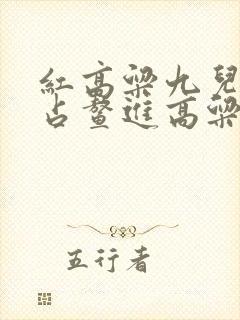 紅高粱九兒
占鳌進高粱
五行者